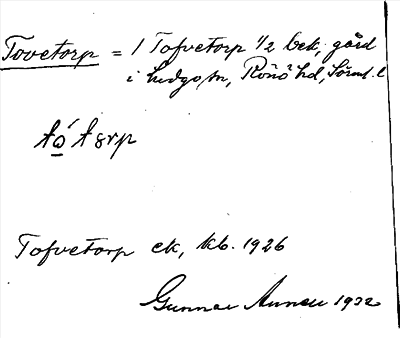 Tovetorp = 1 Tofvetorp 1/2 bek, gård
i Ludgo sn, Rönö hd, Sörml. l
Tofvetorp ek, kb. 1926
Gunnar 1932